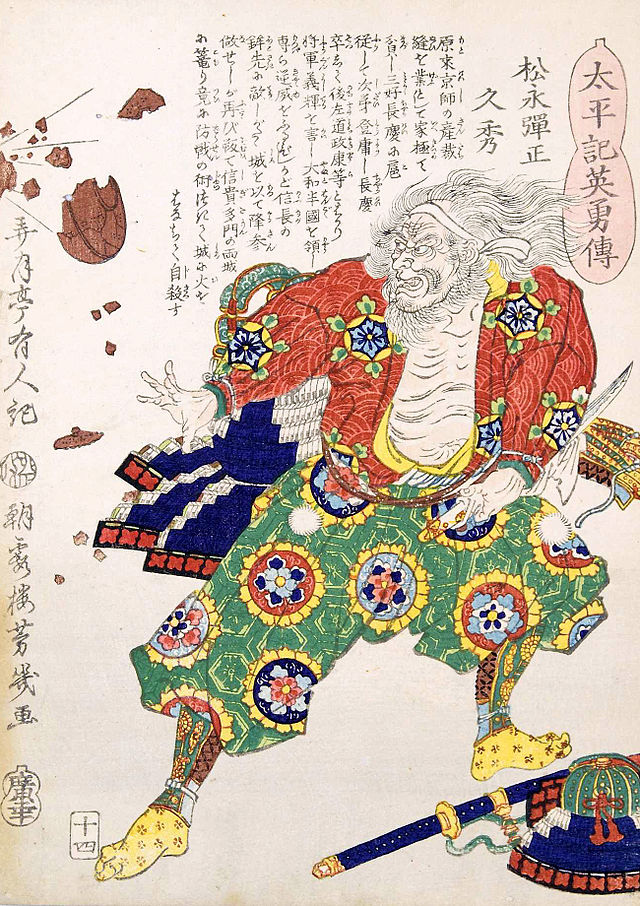 太平記英勇傳
松永彈正
久秀
原來京師の産裁
縫を業として家極て
從して次第登庸長慶
卒して後左道政康等とはかり
將軍義輝を害し大和半國を領し
専ら逆威をふるひしが信長の
鉾先に敵しがたく城を以て降参
做せしが再び叛て信貴多門の両城
に篭り竟に防戦の術つきて城に火を
はなちて自殺す
弄月亭有人記
朝霞楼芳幾画
廣華
十四